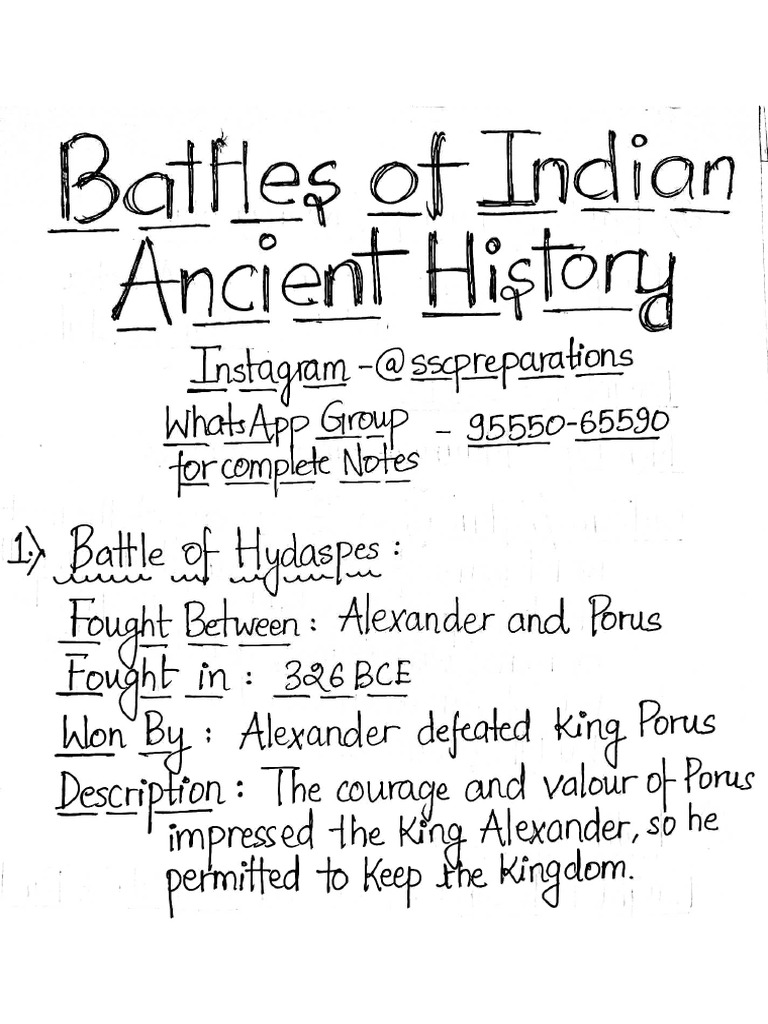 Battles of Indian
Ancient History
Instagram - @sscpreparations
WhatsApp Group - 95550-65590
for complete Notes
1.) Battle of Hydaspes :
Fought Between : Alexander and Porus
Fought in : 326 BCE
Won By : Alexander defeated King Porus
Description : The courage and valour of Porus
impressed the King Alexander, so he
permitted to Keep the Kingdom.